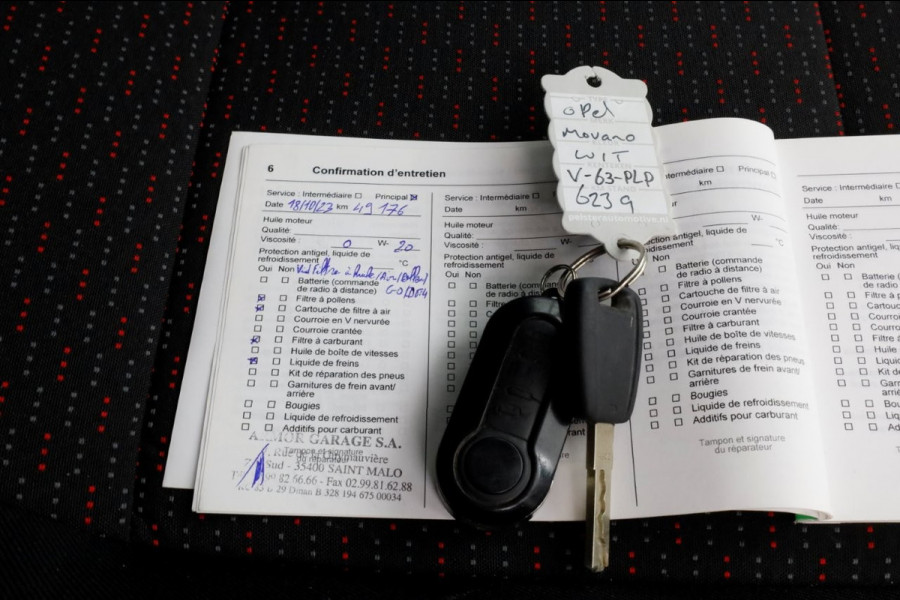 opel
Movano
WIT
V-63-PLP
6239
pelsterautomotive.nl
6 Confirmation d'entretien
Service : Intermédiaire Principal
Date 18/10/23 km 49 176
Huile moteur
Qualité:
Viscosité : 0 W- 20
Protection antigel, liquide de
refroidissement °C
Oui Non
Batterie (commande
de radio à distance)
Filtre à pollens
Cartouche de filtre à air
Courroie en V nervurée
Courroie crantée
Filtre à carburant
Huile de boîte de vitesses
Liquide de freins
Kit de réparation des pneus
Garnitures de frein avant/
arrière
Bougies
Liquide de refroidissement
Additifs pour carburant
Tampon et signature
du réparateur
ARMOR GARAGE S.A.
Sud - 35400 SAINT MALO
82 66.66 - Fax 02.99.81.62.88
B 29 Dinan B 328 194 675 00034
Service : Intermédiaire
Date km
Huile moteur
Qualité:
Viscosité :
Protection antigel, liquide de
refroidissement
Oui Non
Batterie (commande
de radio à distance)
termédiaire Principal
km
W-
antigel, liquide de
°C
Non
Batterie (commande
de radio à distance)
Filtre à pollens
Cartouche de filtre à air
Courroie en V nervurée
Courroie crantée
Filtre à carburant
Huile de boîte de vitesses
Liquide de freins
Kit de réparation des pneus
Garnitures de frein avant/
arrière
Bougies
Liquide de refroidissement
Additifs pour carburant
Tampon et signature
du réparateur
Service : Intermédiaire
Date km
Huile moteur
Qualité:
Viscosité :
Protection antigel, liquide de
refroidissement
Oui Non
Batterie (
de radio à
Filtre à p
Cartouche
Courroie
Courro
Filtre
Huile
Liquid
Kit de
Garn
arriè
Bou
Liq
Ad